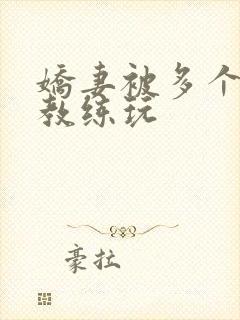 娇妻被多个
教练玩
豪拉